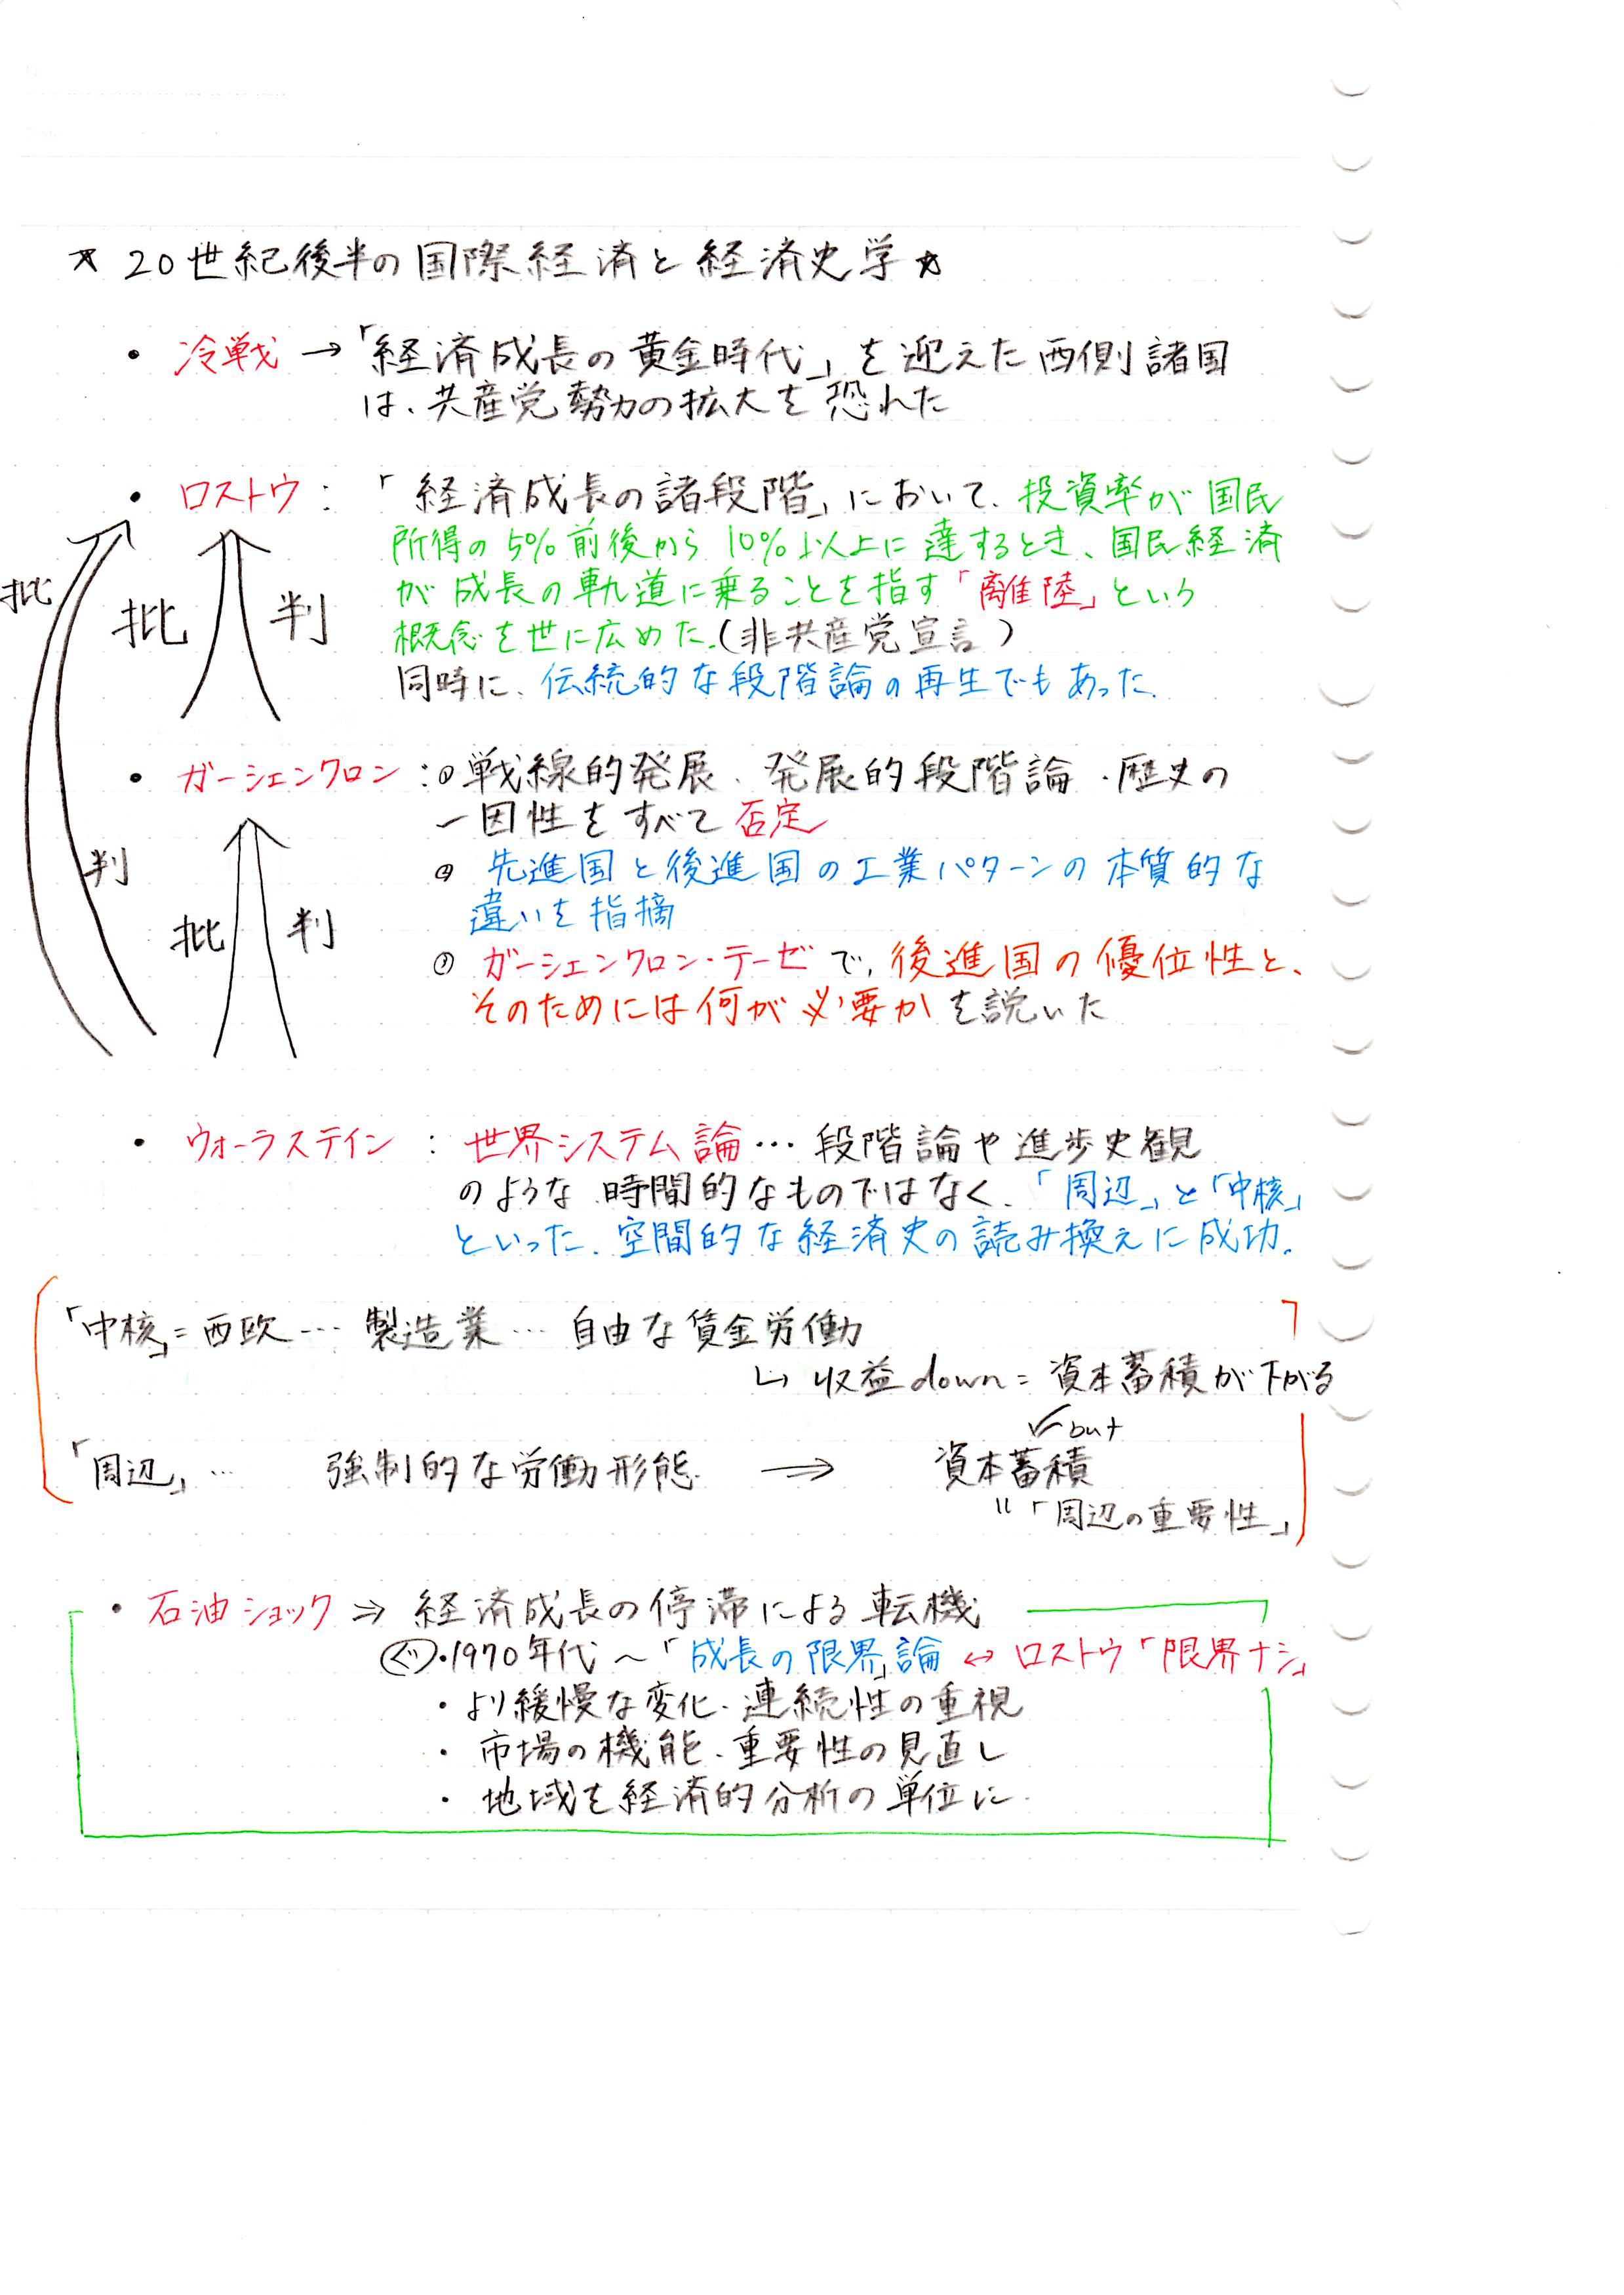 ☆ 20世紀後半の国際経済と経済史学 ☆
・冷戦 → 「経済成長の黄金時代」を迎えた西側諸国
は、共産党勢力の拡大を恐れた
・ロストウ : 「経済成長の諸段階」において、投資率が国民
所得の5%前後から10%以上に達するとき、国民経済
が成長の軌道に乗ることを指す「離陸」という
概念を世に広めた。(非共産党宣言)
同時に、伝統的な段階論の再生でもあった。
批判
批判
・ガーシェンクロン : ①戦線的発展、発展的段階論・歴史の
一因性をすべて否定
② 先進国と後進国の工業パターンの本質的な
違いを指摘
③ ガーシェンクロン・テーゼで、後進国の優位性と、
そのためには何が必要かを説いた
批判
・ウォーラステイン : 世界システム論… 段階論や進歩史観
のような時間的なものではなく、「周辺」と「中核」
といった、空間的な経済史の読み換えに成功。
「中核」= 西欧 … 製造業 … 自由な賃金労働
↳ 収益down = 資本蓄積が下がる
but
「周辺」… 強制的な労働形態 → 資本蓄積
〃「周辺の重要性」
・石油ショック ⇒ 経済成長の停滞による転機
・1970年代〜「成長の限界」論 ↔ ロストウ「限界ナシ」
・より緩慢な変化・連続性の重視
・市場の機能、重要性の見直し
・地域を経済的分析の単位に